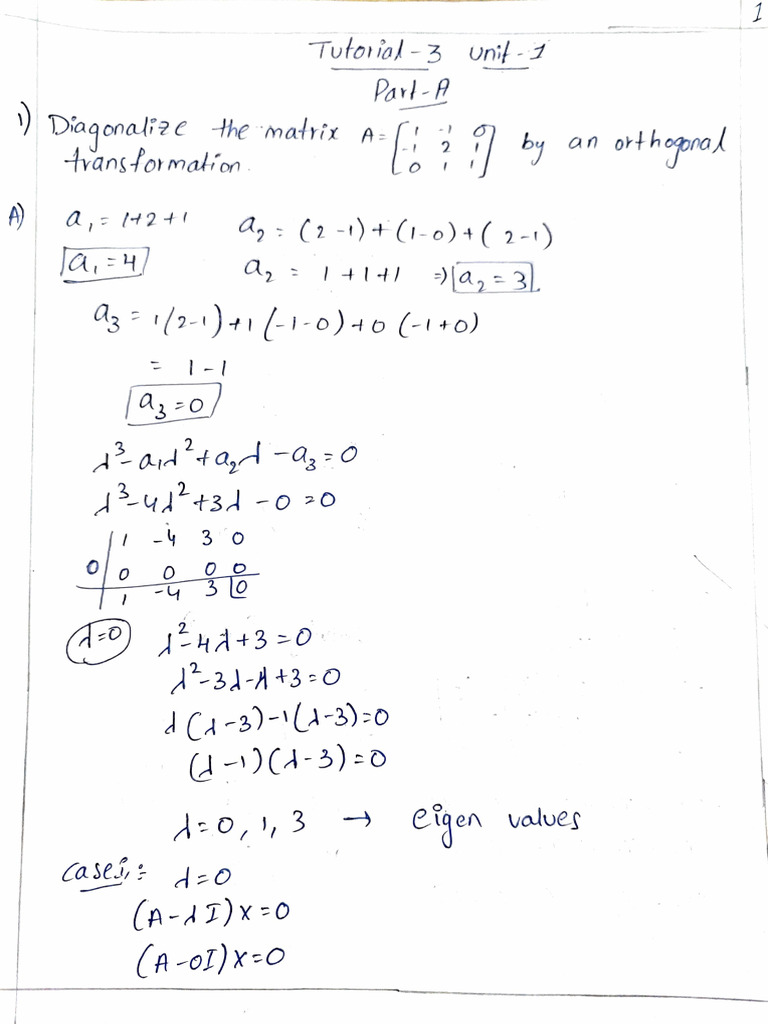 1
Tutorial-3 Unit-1
Part-A
1) Diagonalize the matrix A = [1 -1 0; -1 2 1; 0 1 1] by an orthogonal
transformation.
A) a₁ = 1+2+1 a₂ = (2-1)+(1-0)+(2-1)
a₁=4 a₂ = 1+1+1 ⇒ a₂ = 3
a₃ = 1(2-1)+1(-1-0)+0(-1+0)
= 1-1
a₃=0
λ³-a₁λ²+a₂λ-a₃=0
λ³-4λ²+3λ-0=0
1 -4 3 0
0 0 0 0 0
1 -4 3 0
λ=0 λ²-4λ+3=0
λ²-3λ-λ+3=0
λ(λ-3)-1(λ-3)=0
(λ-1)(λ-3)=0
λ=0,1,3 → eigen values
case i,: λ=0
(A-λI)x=0
(A-0I)x=0